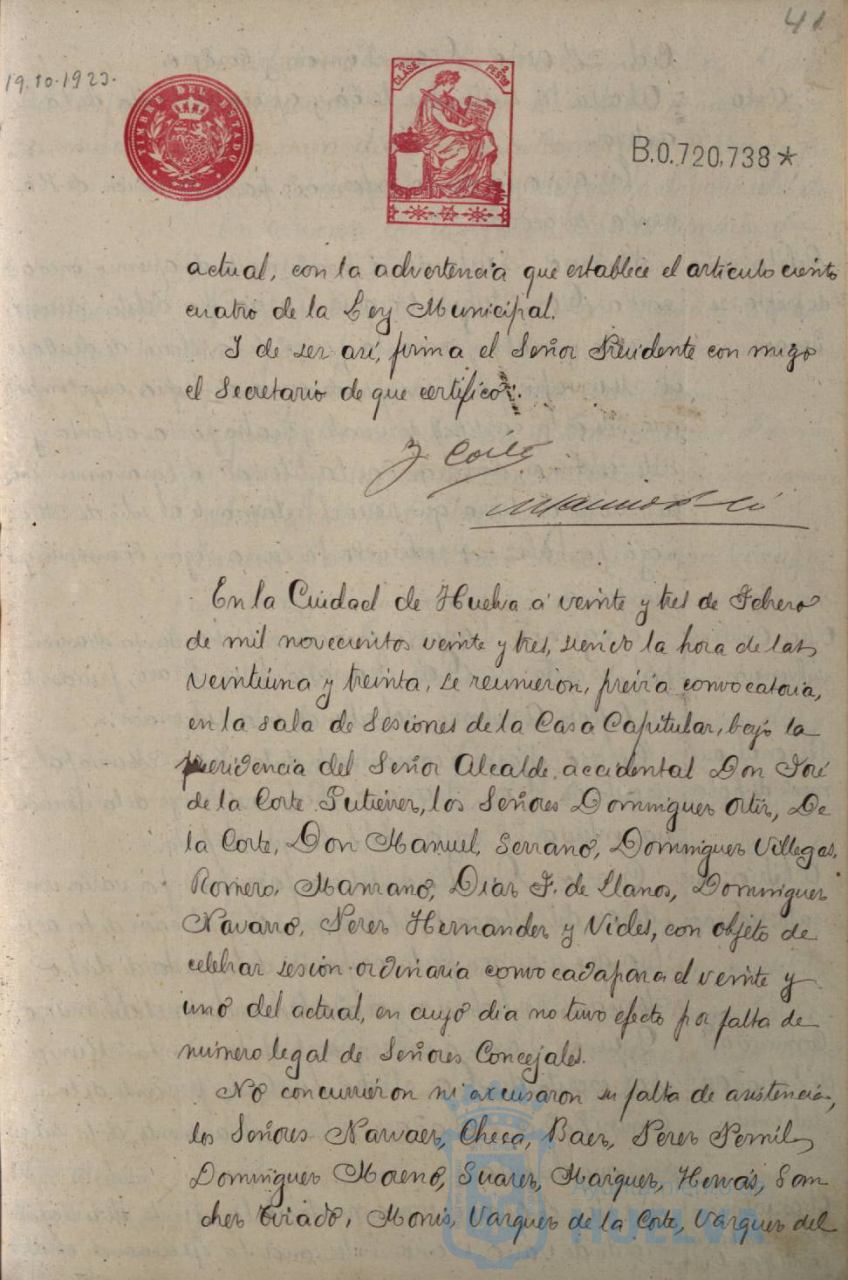 41
19.10.1923.
TIMBRE DEL ESTADO
7ª CLASE 2 PESETAS
B.0.720,738*
actual, con la advertencia que establece el artículo ciento
cuatro de la Ley Municipal.
Y de ser así, firma el Señor Presidente con migo
el Secretario de que certifico.
J Corte
En la Ciudad de Huelva a veinte y tres de Febrero
de mil novecientos veinte y tres, siendo la hora de las
veintiuna y treinta, se reunieron, previa convocatoria,
en la sala de Sesiones de la Casa Capitular, bajo la
presidencia del Señor Alcalde accidental Don José
de la Corte Gutiérrez, los Señores Dominguez Ortiz, De
la Corte, Don Manuel, Serrano, Dominguez Villegas,
Romero, Manzano, Diaz F. de Llanos, Dominguez
Navarro, Perez Hernandez y Vides, con objeto de
celebrar sesión ordinaria convocada para el veinte y
uno del actual, en cuyo dia no tuvo efecto por falta de
número legal de Señores Concejales.
No concurrieron ni excusaron su falta de asistencia,
los Señores Narvaez, Checa, Baez, Perez Pernil,
Dominguez Moreno, Suarez, Marquez, Hervás, San
chez Tirado, Monis, Vazquez de la Corte, Vazquez del
HUELVA